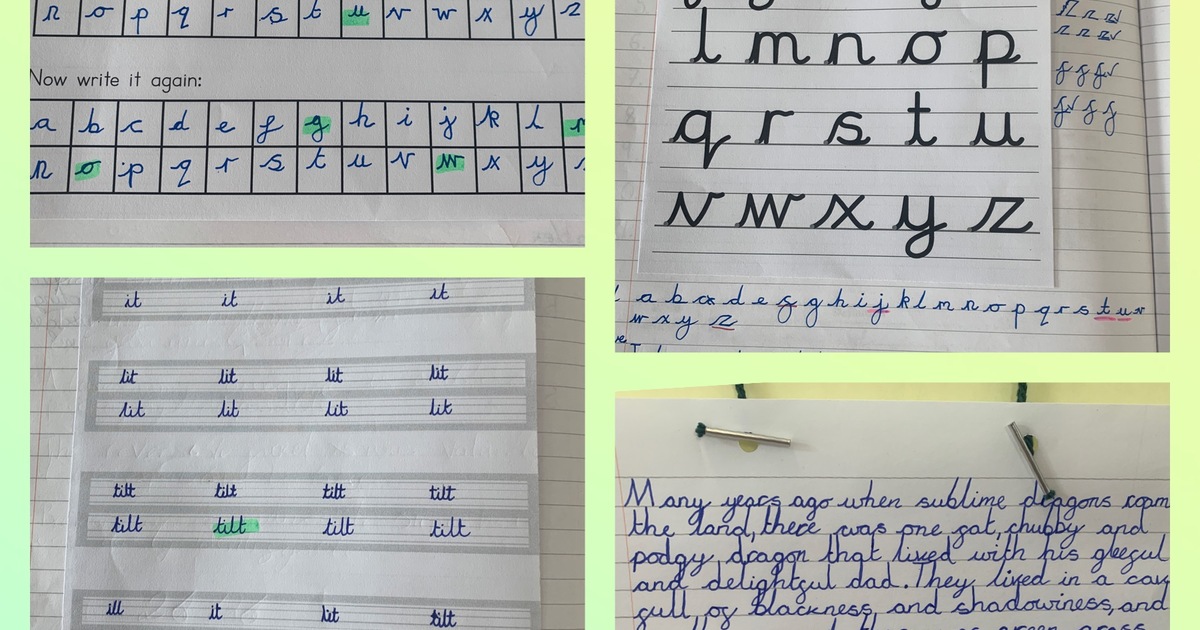 n o p q r s t u v w x y z
Now write it again:
a b c d e f g h i j k l
n o p q r s t u v w x y
it it it it
lit lit lit lit
lit lit lit lit
tilt tilt tilt tilt
tilt tilt tilt tilt
ill it lit tilt
l m n o p
q r s t u
v w x y z
z z z
z z z
f f f
f f f
a b c d e f g h i j k l m n o p q r s t u v
w x y z
Many years ago when sublime dragons roam
the land, there was one fat, chubby and
podgy dragon that lived with his gleeful
and delightful dad. They lived in a cave
full of blackness and shadowiness, and